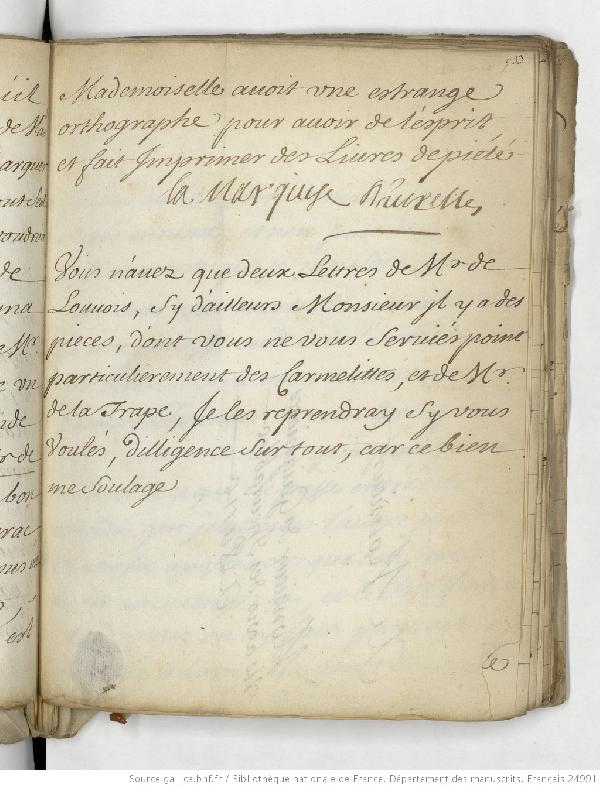 533
Mademoiselle auoit vne estrange
orthographe pour auoir de l'ésprit
et fait Jmprimer des Liures de pietés
la Marquise d'huxelles
Vous n'auez que deux Lettres de Mr de
Louuois, sy d'ailleurs Monsieur jl y a des
pieces, dont vous ne vous seruiés point
particulierement des Carmelittes, et de Mr.
de la Trape, Je les reprendray sy vous
voulés, dilligence sur tout, car ce bien
me soulage
Source gallica.bnf.fr / Bibliothèque nationale de France. Département des manuscrits. Français 24991